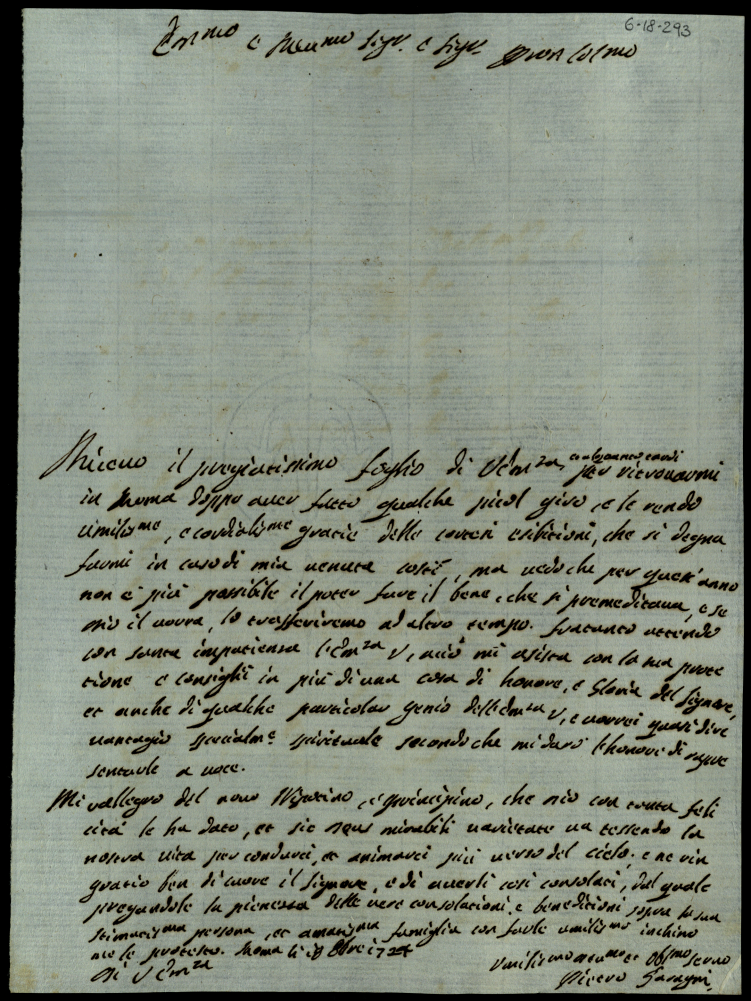 6-18-293
Em:mo e Reu:mo Sig.r e Sig.r Pron Colmo
Riceuo il pregiatissimo foglio di V Em:za per ritrouarmi
in Roma doppo auer fatto qualche picol giro, e le rendo
umilis:me, e cordialis:me gratie delle cortesi esibitioni, che si degna
farmi in caso di mia uenuta costì, ma uedo che per quest'anno
non è più possibile il poter fare il bene, che si premeditaua, e se
Dio il uorra, lo trasferiremo ad altro tempo. Fratanto attendo
con santa impatienza l'Em:za V, acciò mi asista con la sua prote
tione e consigli in più di una cosa di honore, e Gloria del Signore,
et anche di qualche particolar genio dell'Em:za V, e uorrei quasi dire
uantagio specialm:e spirituale secondo che mi darò l'honore di rapre
sentarle a uoce.
Mi rallegro del nouo Nipotino, e principino, che Dio con tanta feli
cità le ha dato, et sic Deus mirabili uarietate ua tessendo la
nostra uita per condurci, et animarci più uerso del cielo. e ne rin
gratio ben di cuore il Signore, e di auerli così consolati, dal quale
pregandole la pienezza delle uere consolationi, e beneditioni sopra la sua
stimatis:ma persona, et amatis:ma famiglia con farle umilis:mo inchino
me le protesto. Roma li 18 8bre 1724
Di V Em:za
Umilis:mo Deuo:mo et Obl:mo Seruo
Pietro